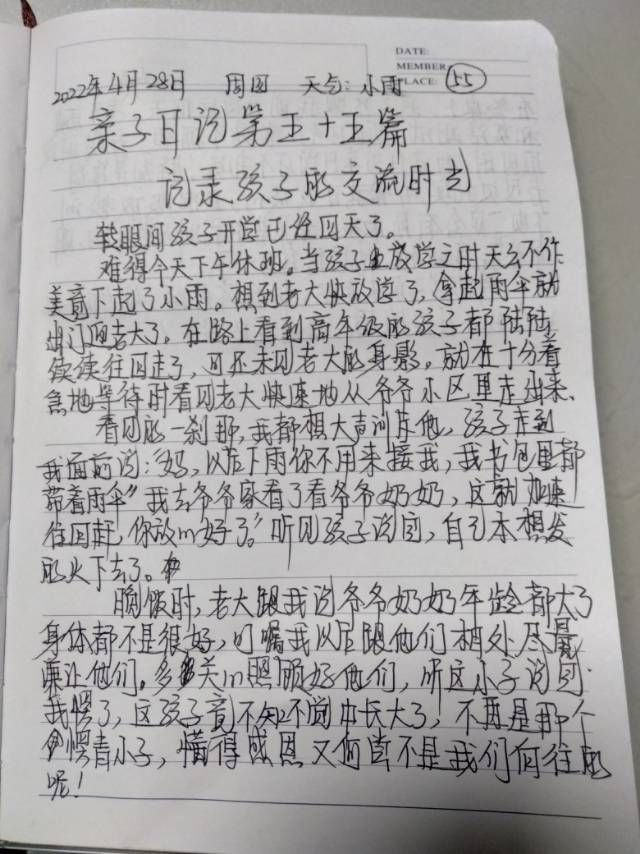 DATE:
MEMBER
PLACE: 55
2022年4月28日 周四 天气:小雨
亲子日记第五十五篇
记录孩子的交流时光
转眼间孩子开学已经四天了。
难得今天下午休班。当孩子放学之时天公不作
美竟下起了小雨。想到老大快放学了,拿起雨伞就
出门迎老大了。在路上看到高年级的孩子都陆陆
续续往回走了,可还未见老大的身影。就在十分着
急地等待时看见老大快速地从爷爷小区里走出来、
看见的一刹那,我都想大声训斥他,孩子走到
我面前说:“妈,以后下雨你不用来接我,我书包里都
带着雨伞”我去爷爷家看了看爷爷奶奶,这就加速
往回赶,你放心好了。”听见孩子说完,自己本想发
的火下去了。
晚饭时,老大跟我说爷爷奶奶年龄都大了
身体都不是很好,叮嘱我以后跟他们相处尽量
谦让他们。多关心照顾好他们,听这小子说到
我愣了,这孩子竟不知不觉中长大了,不再是那个
愣青小子,懂得感恩又何尝不是我们向往的
呢!